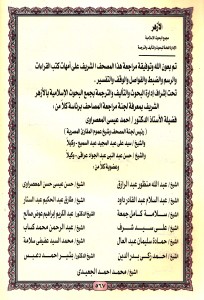 الأزهر
مجمع البحوث الإسلامية
الإدارة العامة للبحوث والتأليف والترجمة
تم بعون الله وتوفيقه مراجعة هذا المصحف الشريف على أمهات كتب القراءات
والرسم والضبط والفواصل والوقف والتفسير.
تحت إشراف إدارة البحوث والتأليف والترجمة بجمع البحوث الإسلامية بالأزهر
الشريف بمعرفة لجنة مراجعة المصاحف برئاسة كلا من:
فضيلة الأستاذ الدكتور / أحمد عيسى المعصراوي
(رئيس لجنة المصحف وشيخ عموم المقارئ المصرية)
الشيخ / سيد على عبد المجيد عبد السميع / وكيلا
الشيخ / حسن عبد النبي عبد الجواد عراقي / وكيلا
وعضوية كلا من:
الشيخ/ عبد الله منظور عبد الرازق
الشيخ/ حسن عيسى حسن المعصراوي
الشيخ/ عبد السلام عبد القادر داود
الشيخ/ طارق عبد الحكيم عبد الستار
الشيخ/ سلامة كامل جمعة
الشيخ الدكتور/ عبد الكريم إبراهيم عوض صالح
الشيخ/ على سيد شرف
الشيخ/ عبد الرحمن محمد كساب
الشيخ/ حمادة سليمان عبد العال
الشيخ/ محمد السيد عفيفي سلامة
الشيخ/ أحمد زكي بدر الدين
الشيخ الدكتور/ بشير أحمد دعبس
الشيخ/ محمد أحمد الجعيدي